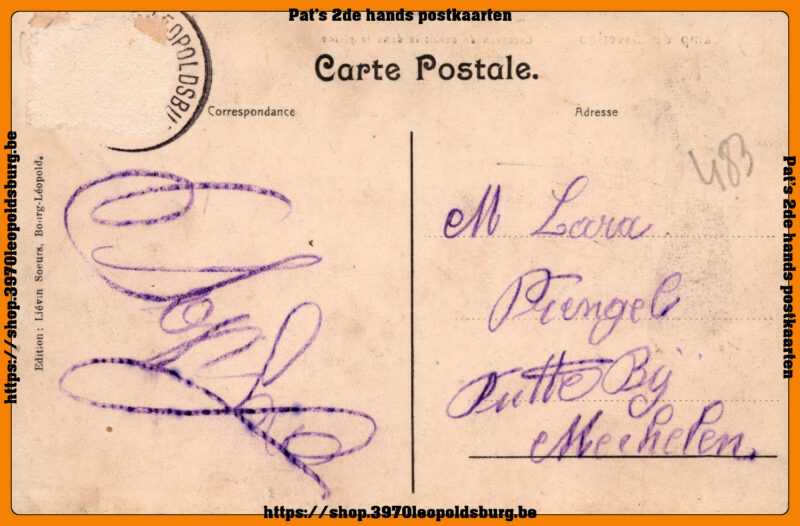 Pat's 2de hands postkaarten
LEOPOLDSBU
Carte Postale.
Correspondance
Adresse
483
https://shop.3970leopoldsburg.be
Edition: Liévin Soeurs, Bourg-Léopold.
M Lara
Piengel
Putte Bij
Mechelen.
Pat's 2de hands postkaarten
https://shop.3970leopoldsburg.be